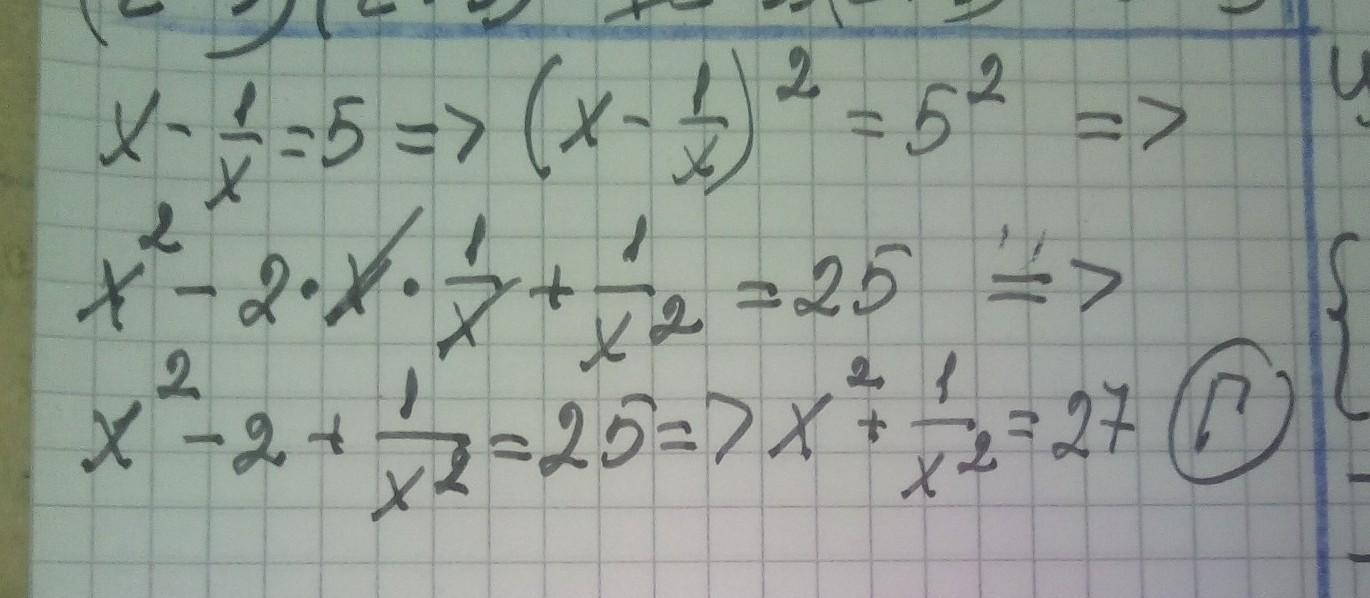 x - 1/x = 5 => (x - 1/x)² = 5² =>
x² - 2 · x · 1/x + 1/x² = 25 =>
x² - 2 + 1/x² = 25 => x² + 1/x² = 27 Г